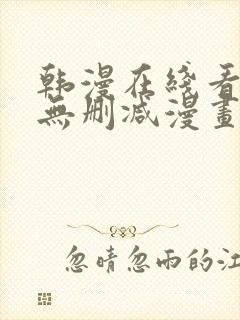 韩漫在线看
無删减漫畫
忽晴忽雨的江